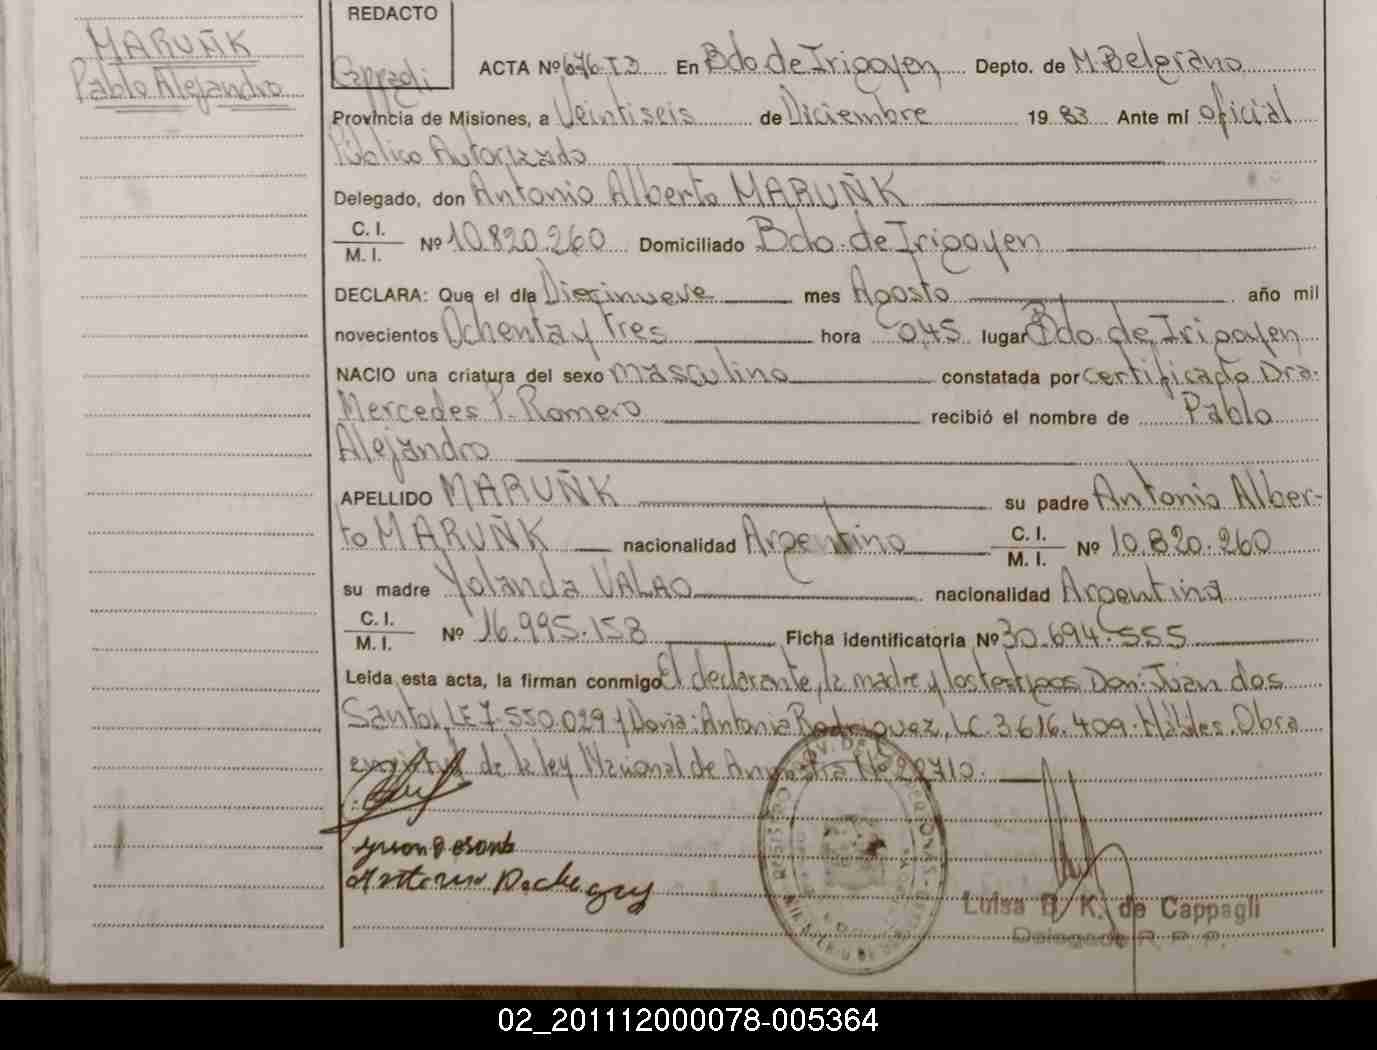 MARUÑK
Pablo Alejandro
REDACTO
Cappagli
ACTA Nº 676 T3 En Bdo de Irigoyen Depto. de M. Belgrano
Provincia de Misiones, a Veintiseis de Diciembre 19 83 Ante mí oficial
Público Autorizado
Delegado, don Antonio Alberto MARUÑK
C. I.
M. I. Nº 10.820.260 Domiciliado Bdo. de Irigoyen
DECLARA: Que el día Diecinueve mes Agosto año mil
novecientos Ochenta y tres hora 0,45 lugar Bdo. de Irigoyen
NACIO una criatura del sexo masculino constatada por certificado Dra.
Mercedes P. Romero recibió el nombre de Pablo
Alejandro
APELLIDO MARUÑK su padre Antonio Alber-
to MARUÑK nacionalidad Argentino C. I. M. I. Nº 10.820.260
su madre Yolanda nacionalidad Argentina
C. I.
M. I. Nº 16.995.158 Ficha identificatoria Nº 30.694.555
Leída esta acta, la firman conmigo El declarante, la madre y los testigos Don: Juan dos
Santos, LE 7.550.029 y Doña: Antonia Rodriguez, LC. 3.616.409. Hábiles. Obra
en de la ley Nacional de Amnistia Nº 22710.
Luisa B. K. de Cappagli
Delegada R. P. P.
02_201112000078-005364